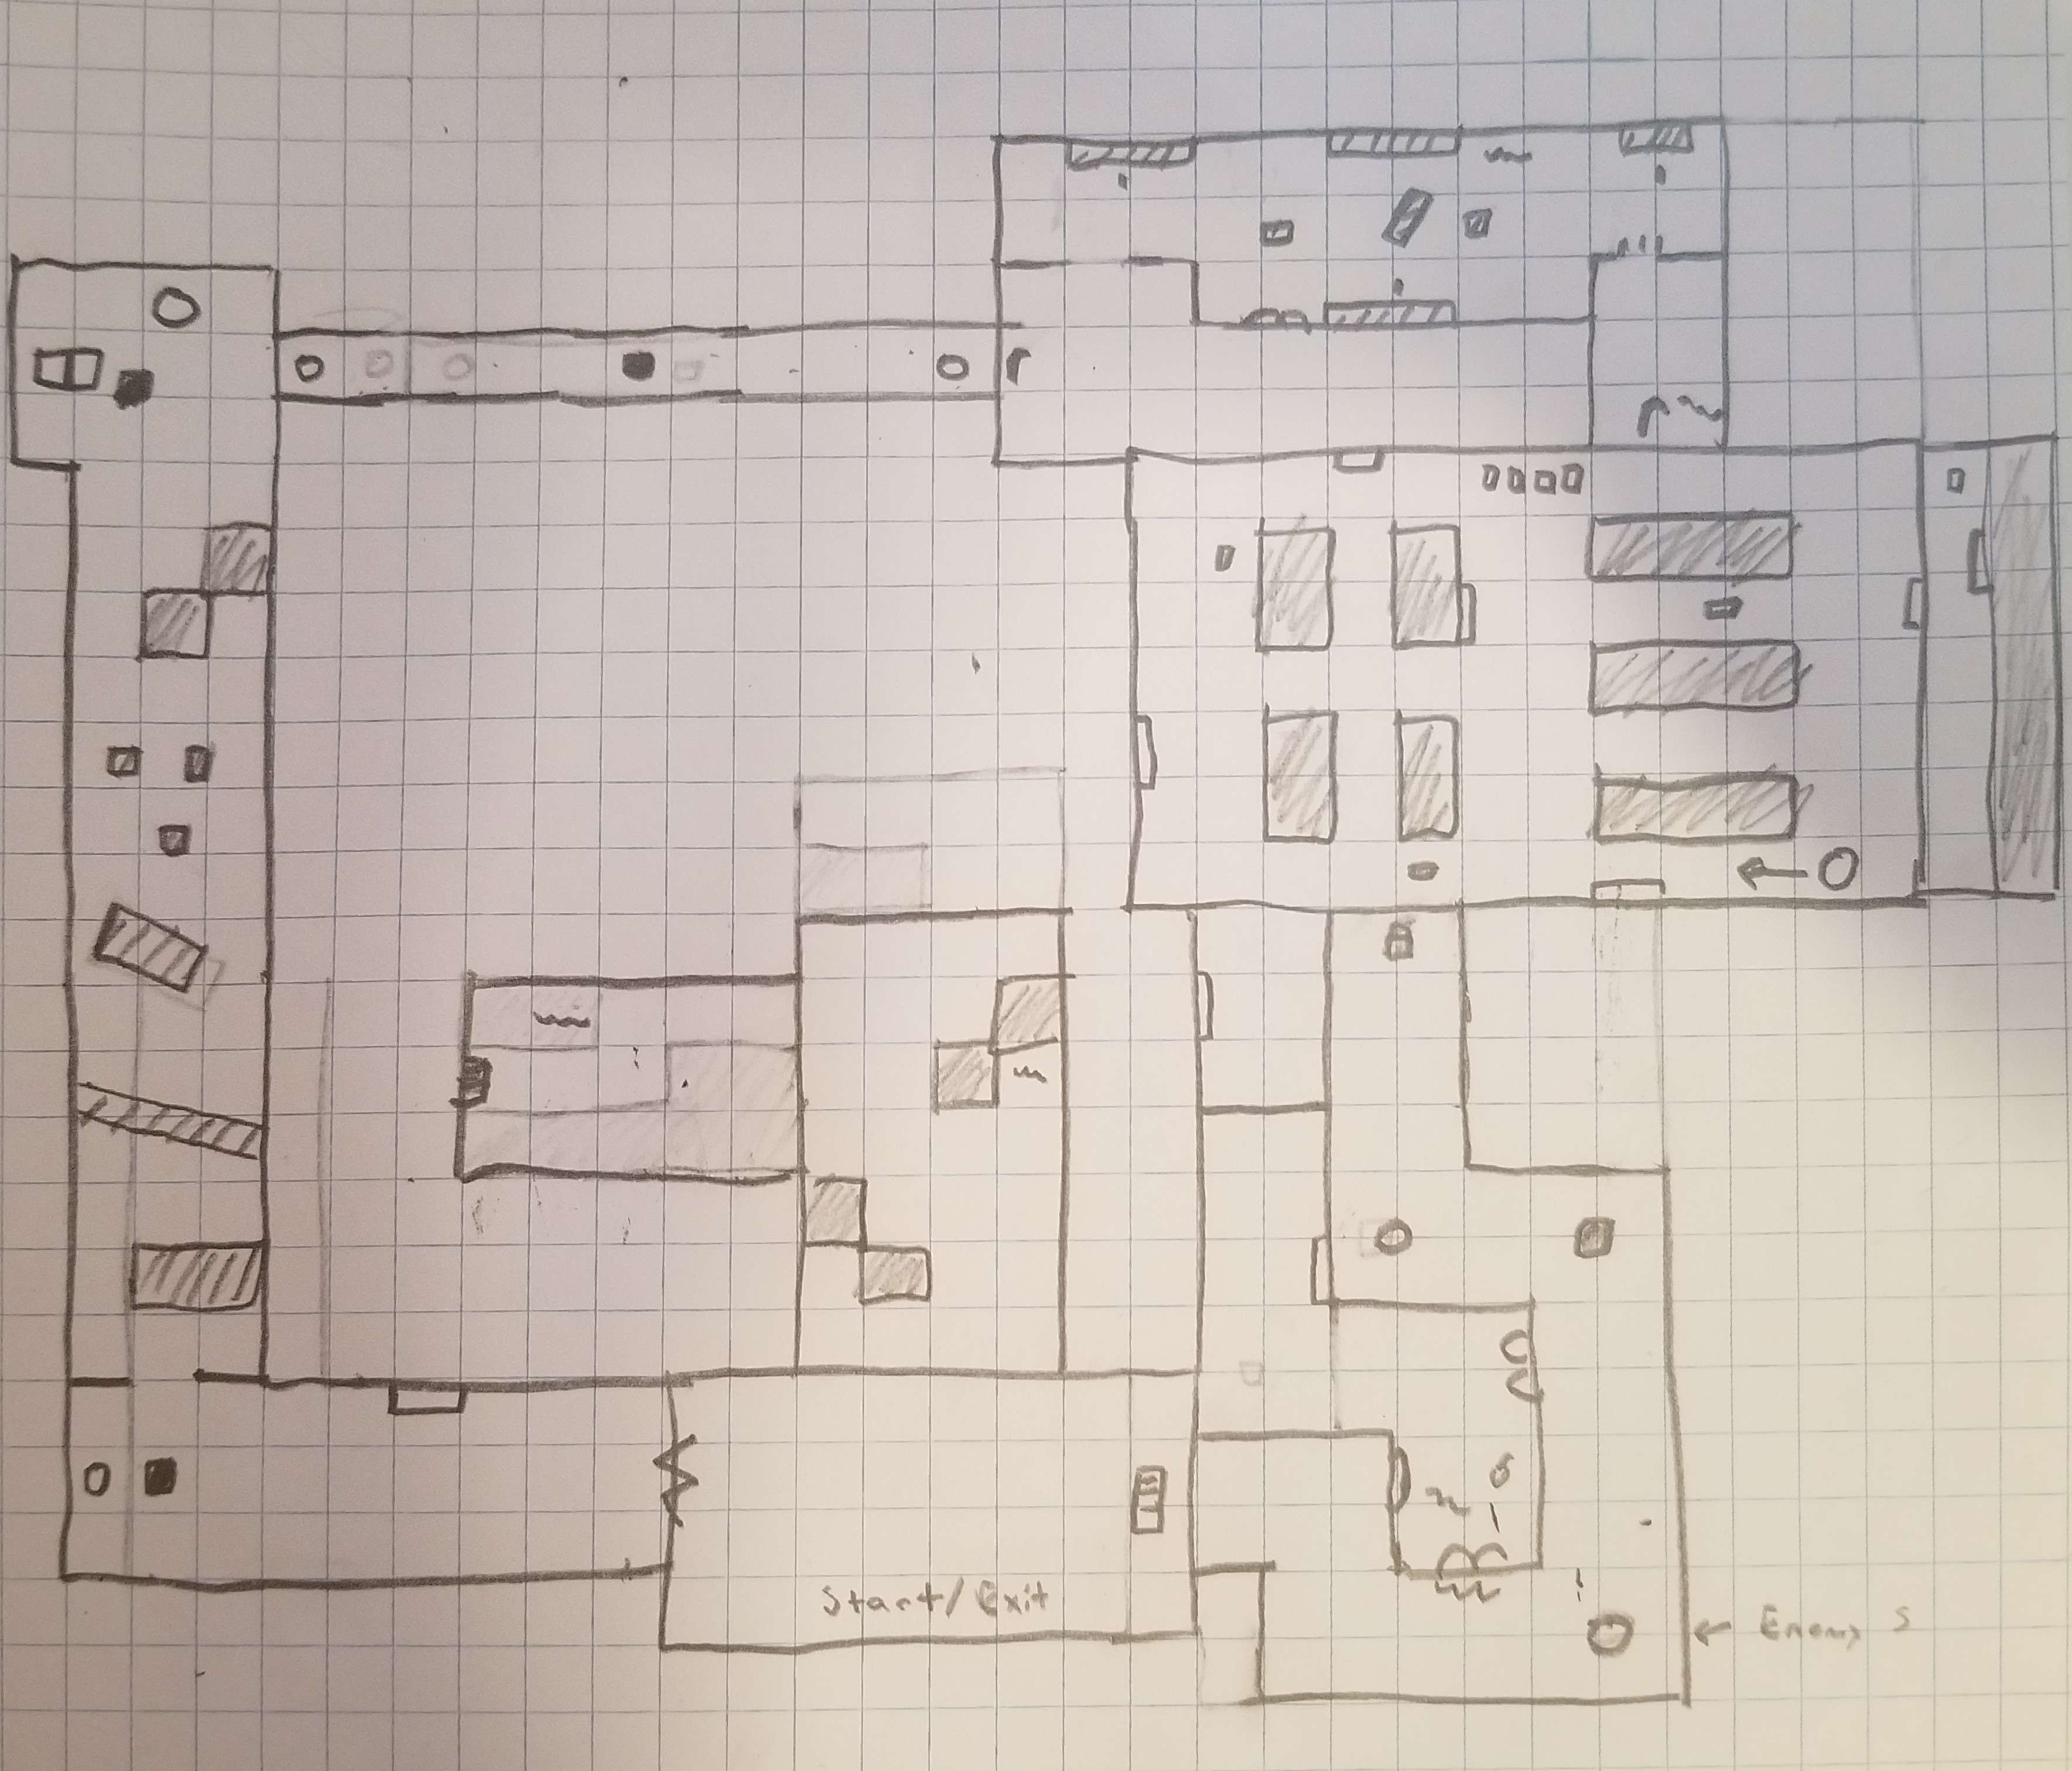 Start/Exit
← Enemy S